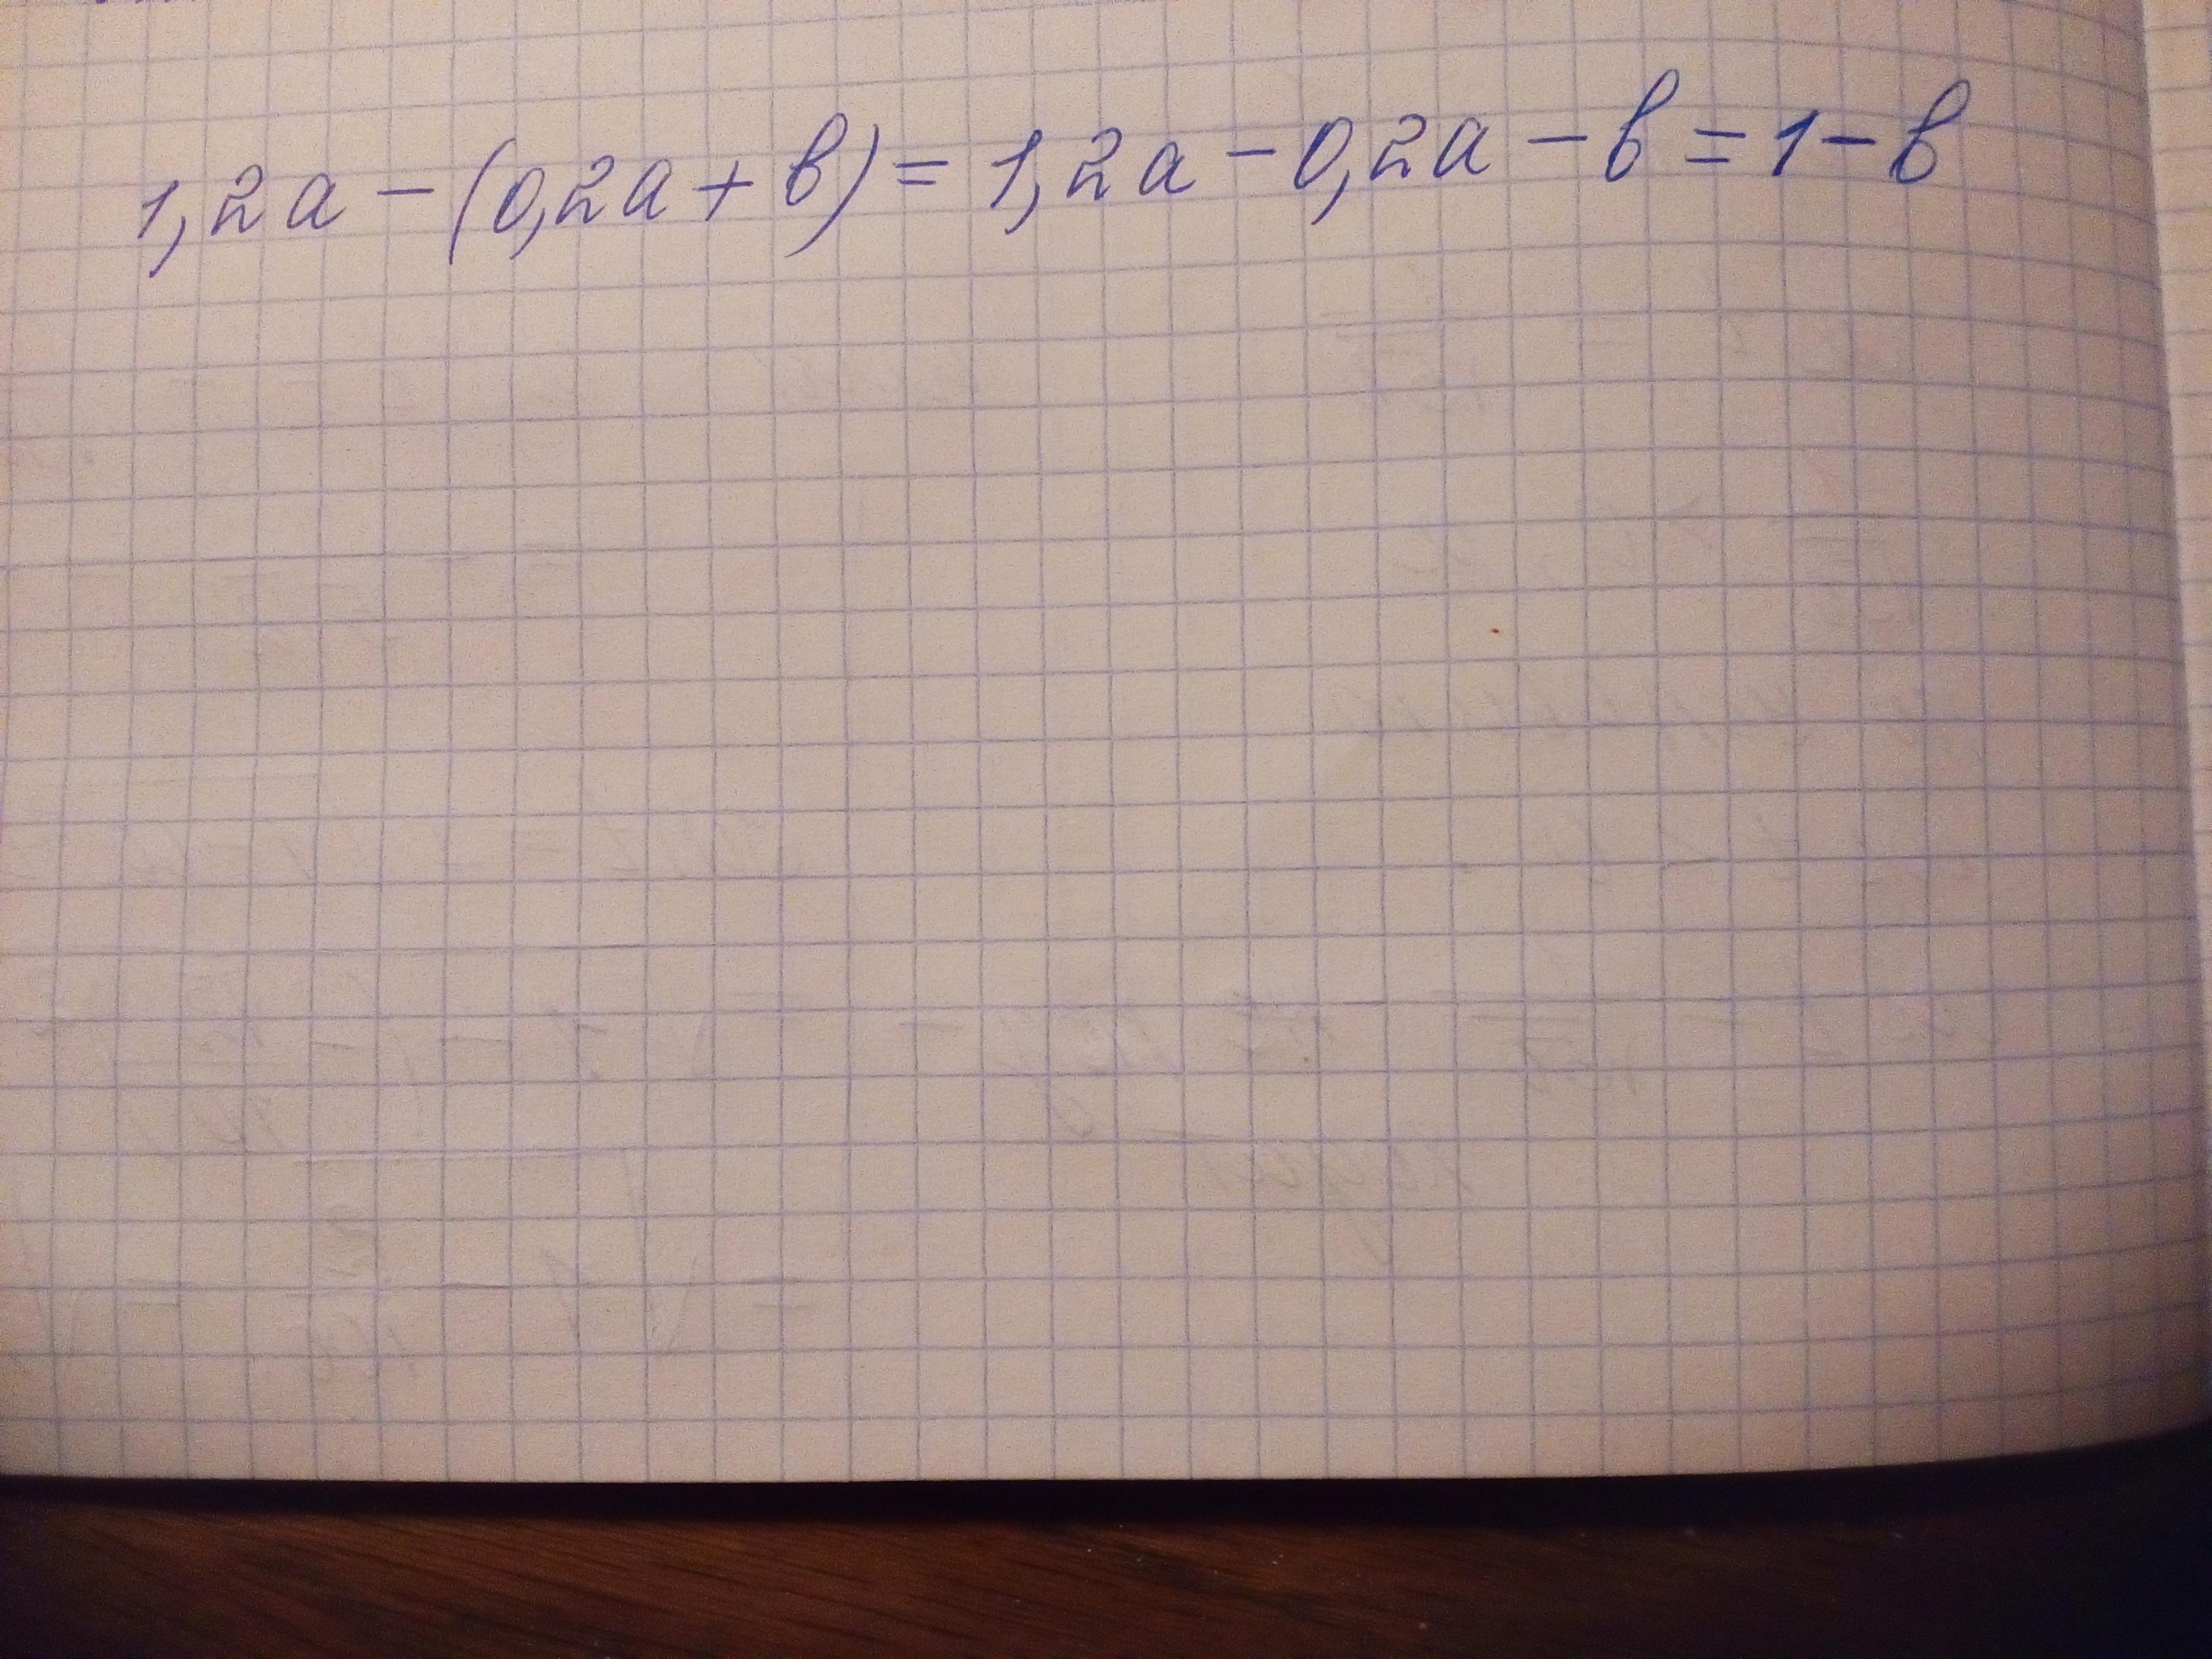 1,2a - (0,2a + b) = 1,2a - 0,2a - b = 1 - b